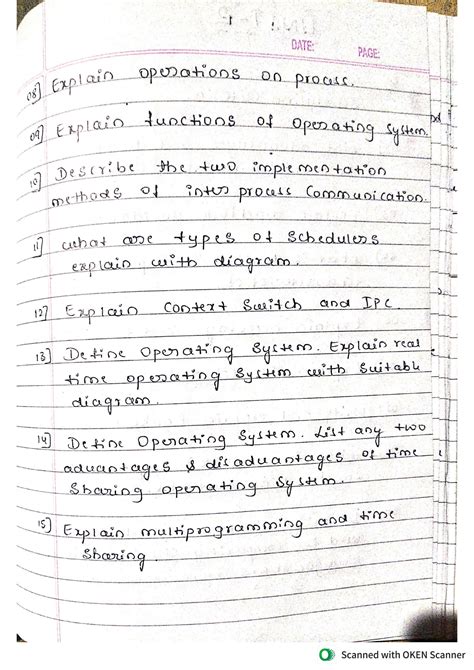 DATE: PAGE:
08] Explain operations on process.
09] Explain functions of Operating System.
10] Describe the two implementation
methods of inter process Communication.
11] what are types of Schedulers
explain with diagram.
12] Explain Context Switch and IPC.
13] Define Operating System. Explain real
time operating System with Suitable
diagram.
14] Define Operating System. List any two
advantages & disadvantages of time
Sharing operating System.
15] Explain multiprogramming and time
Sharing.
Scanned with OKEN Scanner